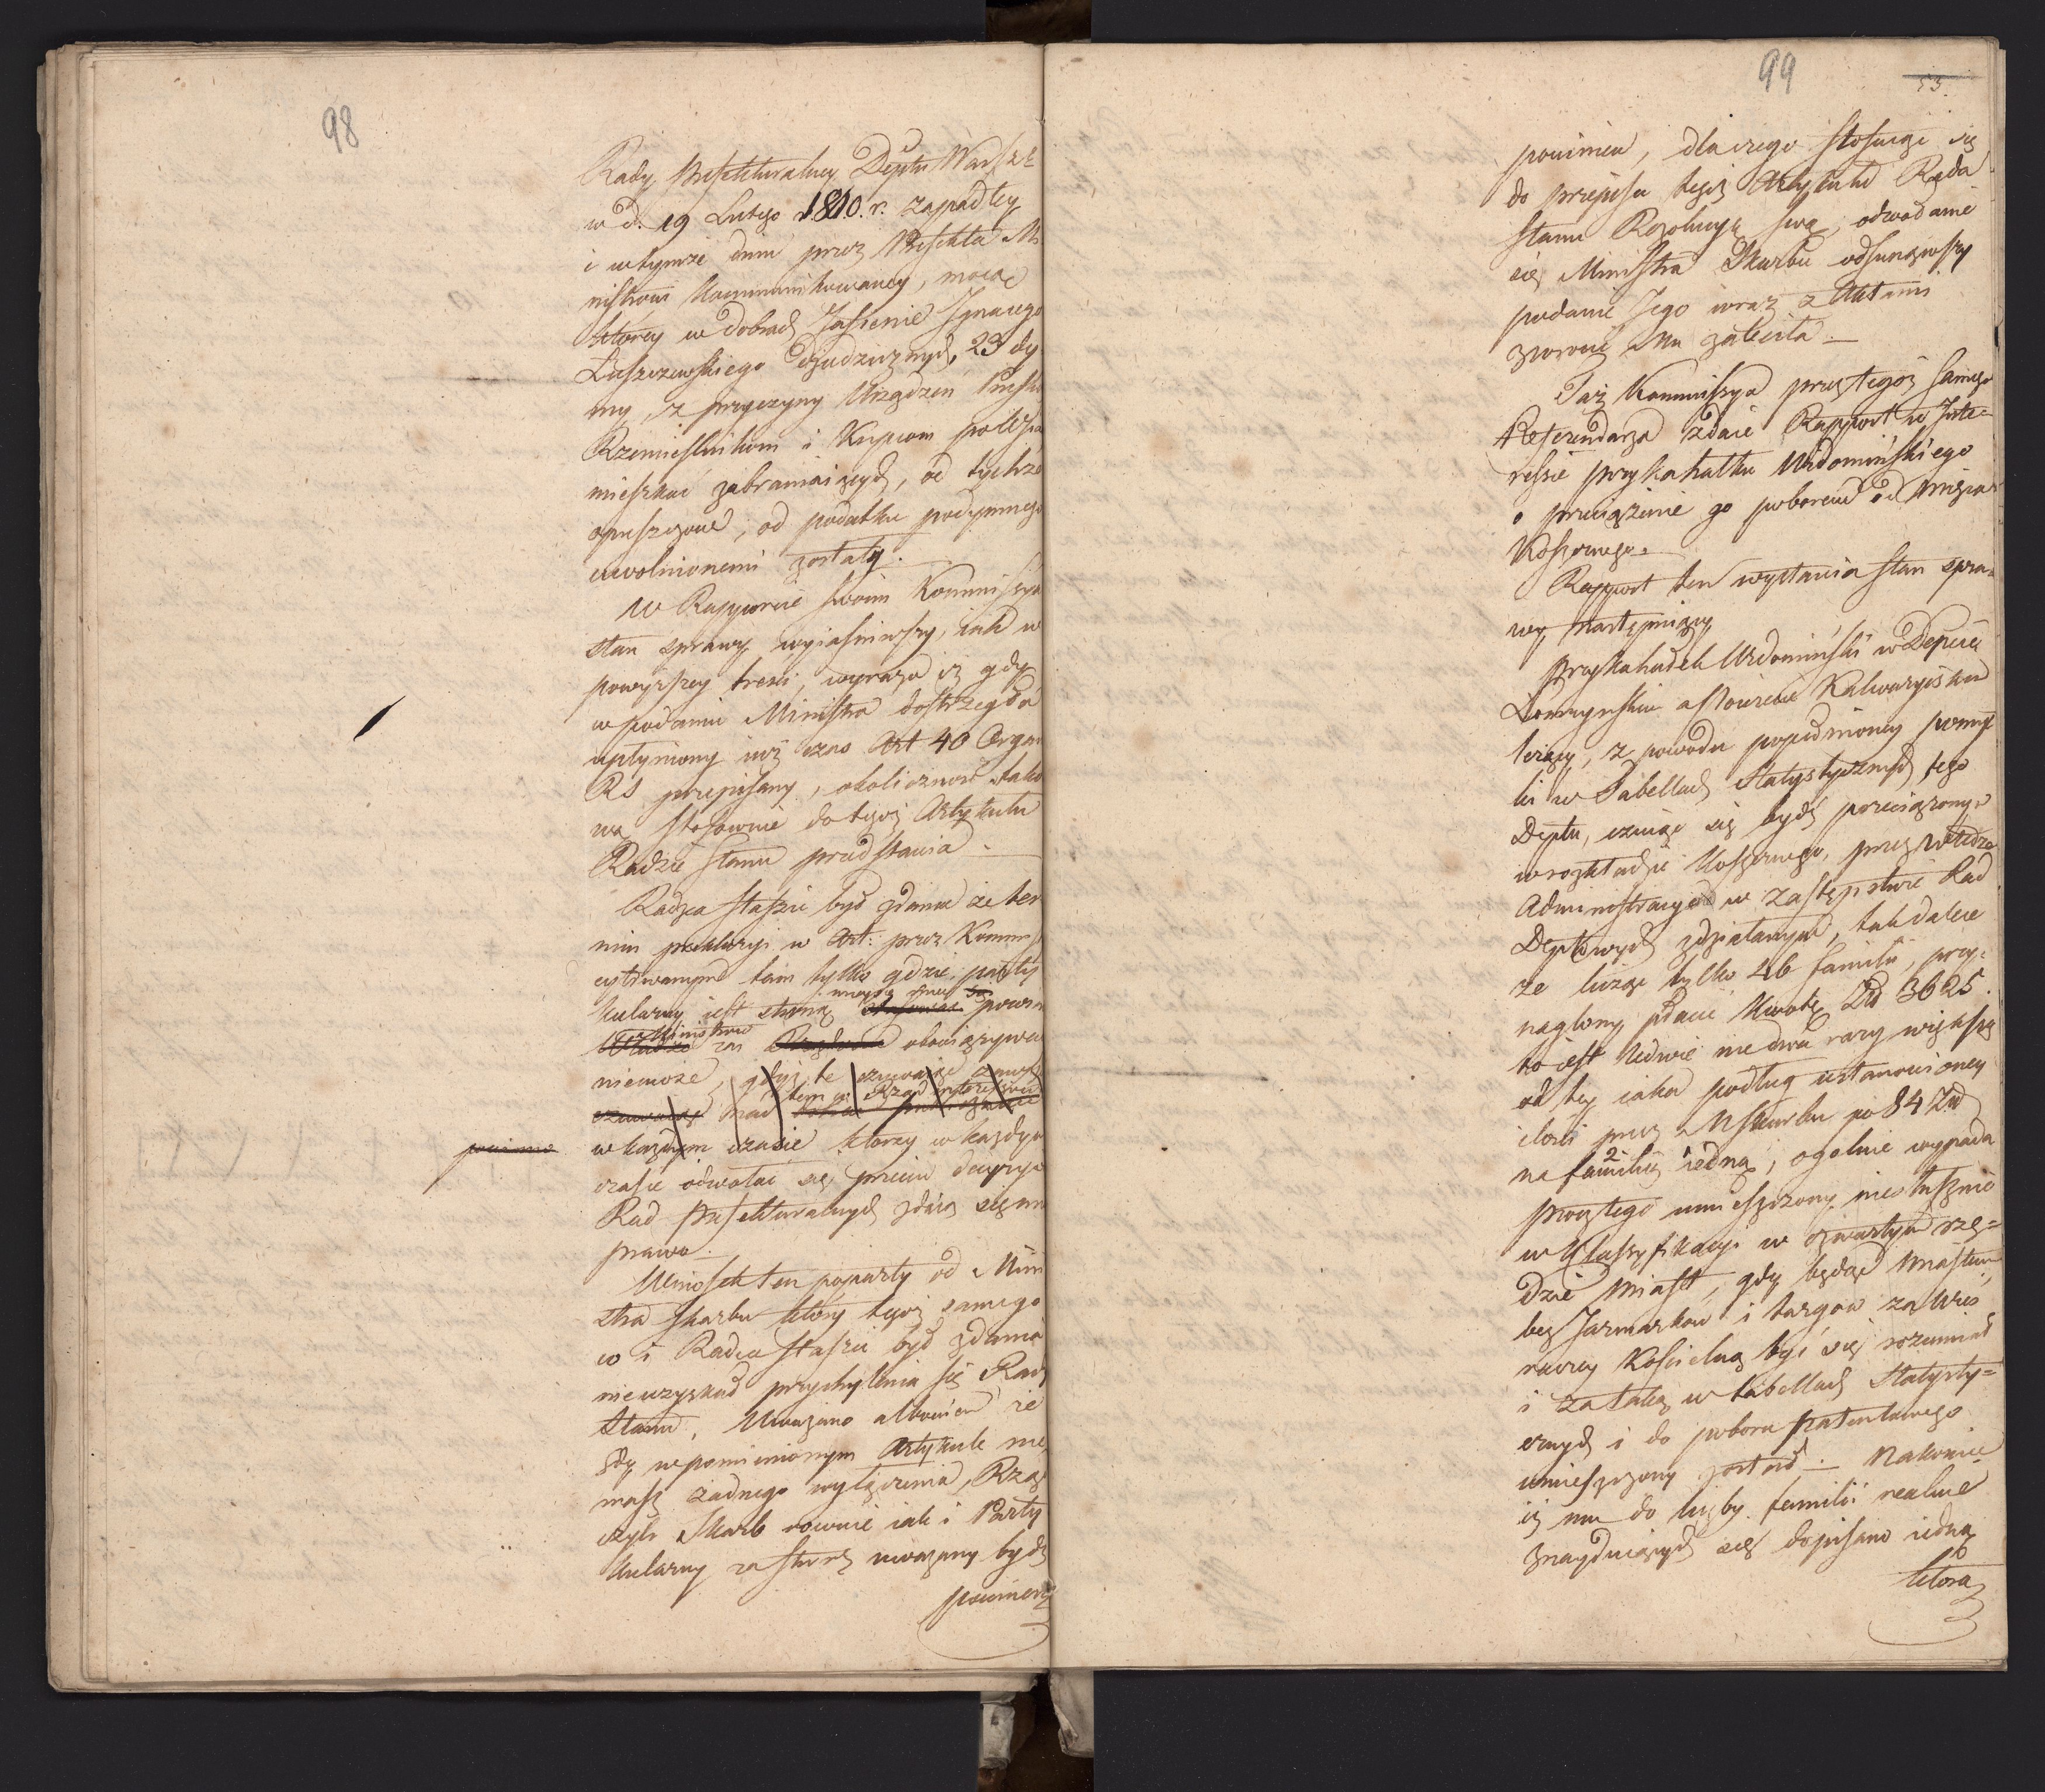 98
Rady Prefekturalney Deptu Warsz:
w d. 19 Lutego 1810. r. zapadłey
i wtymże dniu przez Prefekta Mi
nistrowi kommunikowaney, mocą
ktorey w dobrach Jasienie Ignacego
Łuszczewskiego dziedzicznych, 23 dy
my, z przyczyny Urządzeń Prusk:
Rzemieslnikom i Kupcom po wsia
mieszkać zabraniaiących, od tychże
opuszczone, od podatku podymnego
uwolnionemi zostały.
W Rapporcie swoim Kommissya
stan sprawy wyiasniwszy, iak w
powyższey tresci, wyraża iż gdy
w podaniu Ministra dostrzegła
upłyniony iuż czas Art 40 Organ
RS przepisany, okoliczność tako
wą stosownie do tegoż Artykułu
Radzie Stanu przedstawia.
Radca Staszic był zdania że ter
min prekluzyi w Art: przez Kommis
cytowanym tam tylko gdzie party
kularny iest stroną mieysce mieć powin
Ministrow zaś obowiązywa
niemoże, gdyż te
nad tem
w każdym czasie ktorzy w każdym
powinno
czasie odwołać się przeciw decyzyi
Rad Prefekturalnych zdaią się mie
prawo.
Wniosek ten poparty od Mini
stra Skarbu który tegoż samego
co i Radca Staszic był zdania
nieuzyskał przychylenia się Rady
Stanu. Uważano albowiem że
gdy wspomnionym Artykule nie
masz żadnego wyłączenia, Rząd
czyli Skarb rownie iak i Party
kularny za stronę uważany bydź
powinien
99
53.
powinien, dla czego stosuiąc się
do przepisu tegoż Artykułu Rada
Stanu Rezolucyą swą, odwołanie
się Ministra Skarbu odsunąwszy
podanie Jego wraz z Aktami
zwrocić Mu zaleciła.
Taż Kommissya przez tegoż samego
Referendarza zdaie Rapport w Inte=
ressie przykahałku Urdomińskiego
o przeciążenie go poborem od mięsa
Koszernego.
Rapport ten wystawia stan spra=
wy następuiący
Przykahałek Urdomiński w Depcie
Łomżyńskim a Powiecie Kalwaryiskim
leżący, z powodu popełnioney pomył
ki w Tabellach Statystycznych tego
Deptu, czuiąc się bydź przeciążonym
w rozkładzie Koszernego, przez Władze
Administracyine w zastępstwie Rad
Deptowych zdziałanym, tak dalece
że licząc tylko 26 familii, przy=
naglony płacić kwotę Zł 3625.
to iest ledwie nie dwa razy większą
od tey iaka podług ustanowioney
ilości przez M Skarbu po 84 Zł
na familię 2 iedną, ogolnie wypada
procz tego umieszczony niesłusznie
w Klassyfikacyi w czwartym rzę=
dzie Miast, gdy będąc Miastem
bez Jarmarkow i targow za Wieś
raczey Koscielną być się rozumiał
i za taką w tabellach Statysty=
cznych i do poboru patentowego
umieszczony został. Nakoniec
iż mu do liczby familii realnie
znayduiących się dopisano iedną
ktora